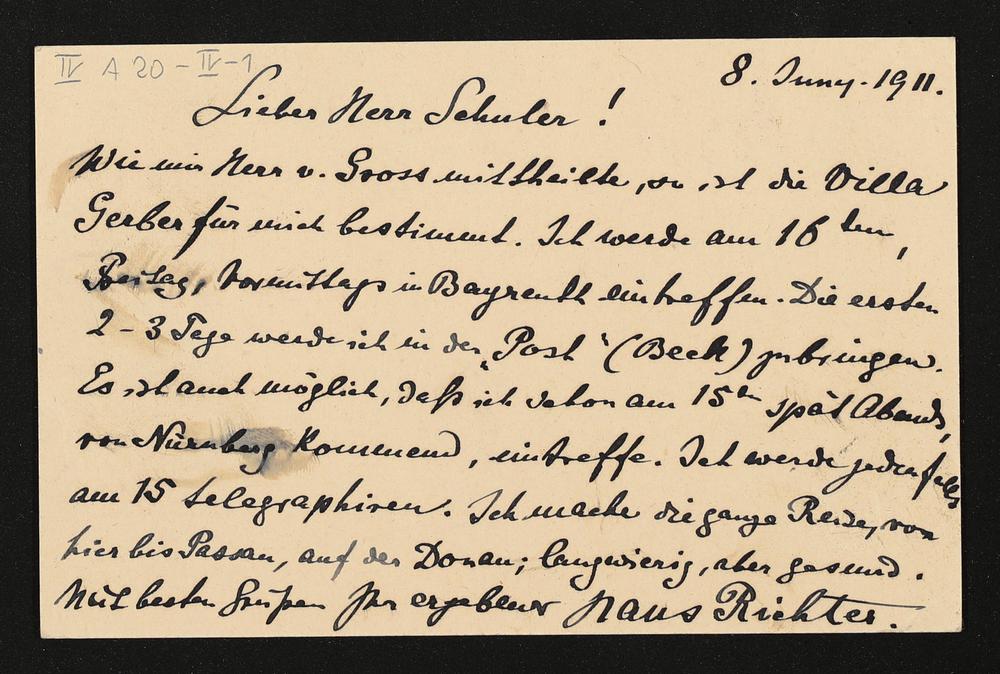 IV A 20 - IV - 1
8. Juny. 1911.
Lieber Herr Schuler!
Wie mir Herr v. Gross mittheilte, so ist die Villa
Gerber für mich bestimmt. Ich werde am 16ten,
Freitag, Vormittags in Bayreuth eintreffen. Die ersten
2-3 Tage werde ich in der „Post“ (Beck) zubringen.
Es ist auch möglich, daß ich schon am 15ten spät Abends,
von Nürnberg kommend, eintreffe. Ich werde jedenfalls
am 15 telegraphiren. Ich mache die ganze Reise, von
hier bis Passau, auf der Donau; langwierig, aber gesund.
Mit besten Grüßen Ihr ergebener Hans Richter.